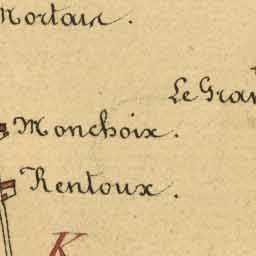 Mortaix.
Le Gran
Monchoix.
Rentoux.
K